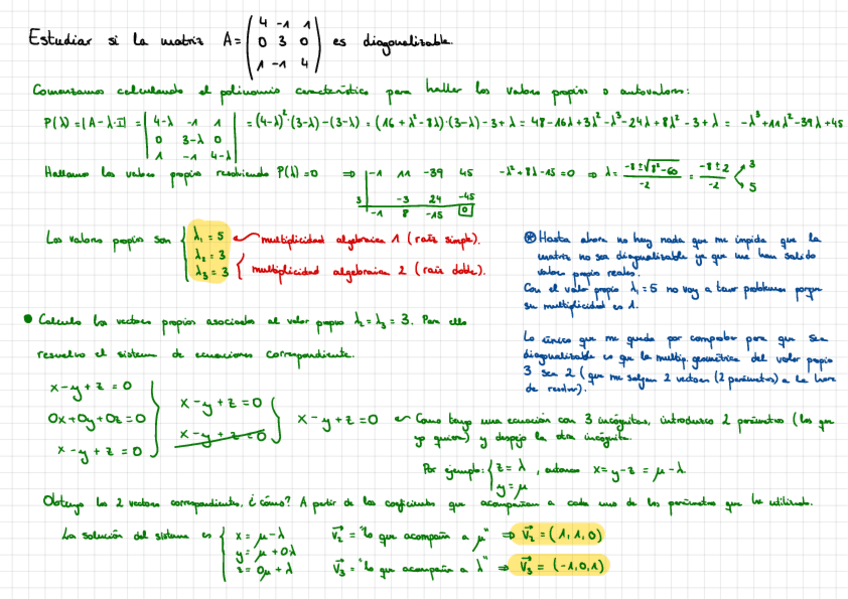 Estudiar si la matriz A = (4 -1 1 / 0 3 0 / 1 -1 4) es diagonalizable.
Comenzamos calculando el polinomio característico para hallar los valores propios o autovalores:
P(λ) = |A-λ·I| = |4-λ -1 1 / 0 3-λ 0 / 1 -1 4-λ| = (4-λ)²·(3-λ)-(3-λ) = (16+λ²-8λ)·(3-λ)-3+λ = 48-16λ+3λ²-λ³-24λ+8λ²-3+λ = -λ³+11λ²-39λ+45
Hallamos los valores propios resolviendo P(λ)=0 ⇒
-1 11 -39 45
3 -3 24 -45
-1 8 -15 0
-λ²+8λ-15=0 ⇒ λ = (-8±√(8²-60))/(-2) = (-8±2)/(-2) < 3 5
Los valores propios son { λ₁ = 5 multiplicidad algebraica 1 (raíz simple).
λ₂ = 3
λ₃ = 3 } multiplicidad algebraica 2 (raíz doble).
⊛ Hasta ahora no hay nada que me impida que la
matriz no sea diagonalizable ya que me han salido
valores propios reales.
Con el valor propio λ₁=5 no voy a tener problemas porque
su multiplicidad es 1.
Lo único que me queda por comprobar para que sea
diagonalizable es que la multip. geométrica del valor propio
3 sea 2 (que me salgan 2 vectores (2 parámetros) a la hora
de resolver).
● Calculo los vectores propios asociados al valor propio λ₂=λ₃=3. Para ello
resuelvo el sistema de ecuaciones correspondiente.
x-y+z=0
0x+0y+0z=0
x-y+z=0
x-y+z=0
x-y+z=0
x-y+z=0
Como tengo una ecuación con 3 incógnitas, introduzco 2 parámetros (los que
yo quiera) y despejo la otra incógnita.
Por ejemplo: { z=λ
y=μ , entonces x=y-z=μ-λ.
Obtengo los 2 vectores correspondientes. ¿Cómo? A partir de los coeficientes que acompañan a cada uno de los parámetros que he utilizado.
La solución del sistema es { x=μ-λ
y=μ+0λ
z=0μ+λ
v₂ = "lo que acompaña a μ" ⇒ v₂ = (1,1,0)
v₃ = "lo que acompaña a λ" ⇒ v₃ = (-1,0,1)